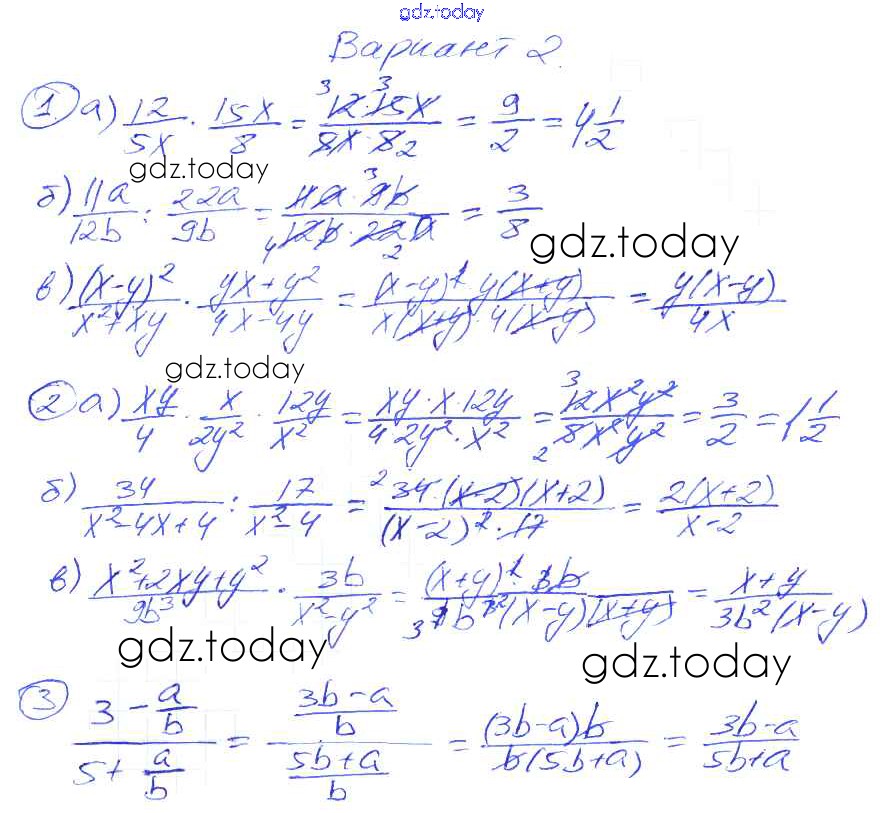 gdz.today
Вариант 2.
1 а) 12/5x · 15x/8 = 12·15x/8x·8 = 9/2 = 4 1/2
gdz.today
б) 11a/12b : 22a/9b = 11a·9b/12b·22a = 3/8
gdz.today
в) (x-y)²/x²+xy · yx+y²/4x-4y = (x-y)²·y(x+y)/x(x+y)·4(x-y) = y(x-y)/4x
gdz.today
2 а) xy/4 · x/2y² · 12y/x² = xy·x·12y/4·2y²·x² = 12x²y²/8x²y² = 3/2 = 1 1/2
б) 34/x²-4x+4 : 17/x²-4 = 34·(x-2)(x+2)/(x-2)²·17 = 2(x+2)/x-2
в) x²+2xy+y²/9b³ · 3b/x²-y² = (x+y)²·3b/9b³(x-y)(x+y) = x+y/3b²(x-y)
gdz.today
gdz.today
3 3-a/b / 5+a/b = 3b-a/b / 5b+a/b = (3b-a)b/b(5b+a) = 3b-a/5b+a